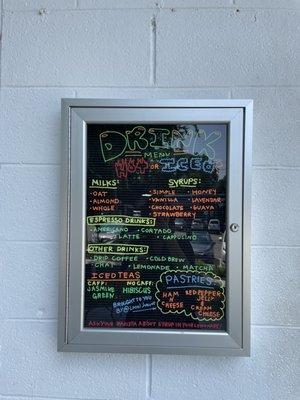 DRINK
MENU
HOT OR ICED
MILKS: SYRUPS:
• OAT • SIMPLE • HONEY
• ALMOND • VANILLA • LAVENDAR
• WHOLE • CHOCOLATE • GUAVA
• STRAWBERRY
ESPRESSO DRINKS:
• AMERICANO • CORTADO
• LATTE • CAPPUCINO
OTHER DRINKS:
• DRIP COFFEE • COLD BREW
• CHAI • LEMONADE • MATCHA
ICED TEAS
CAFF: NO CAFF:
JASMINE HIBISCUS
GREEN
PASTRIES
HAM
N'
CHEESE
RED PEPPER
JELLY
&
CREAM
CHEESE
BROUGHT TO YOU
BY
ASK YOUR BARISTA ABOUT SYRUP IN YOUR LEMONADE!